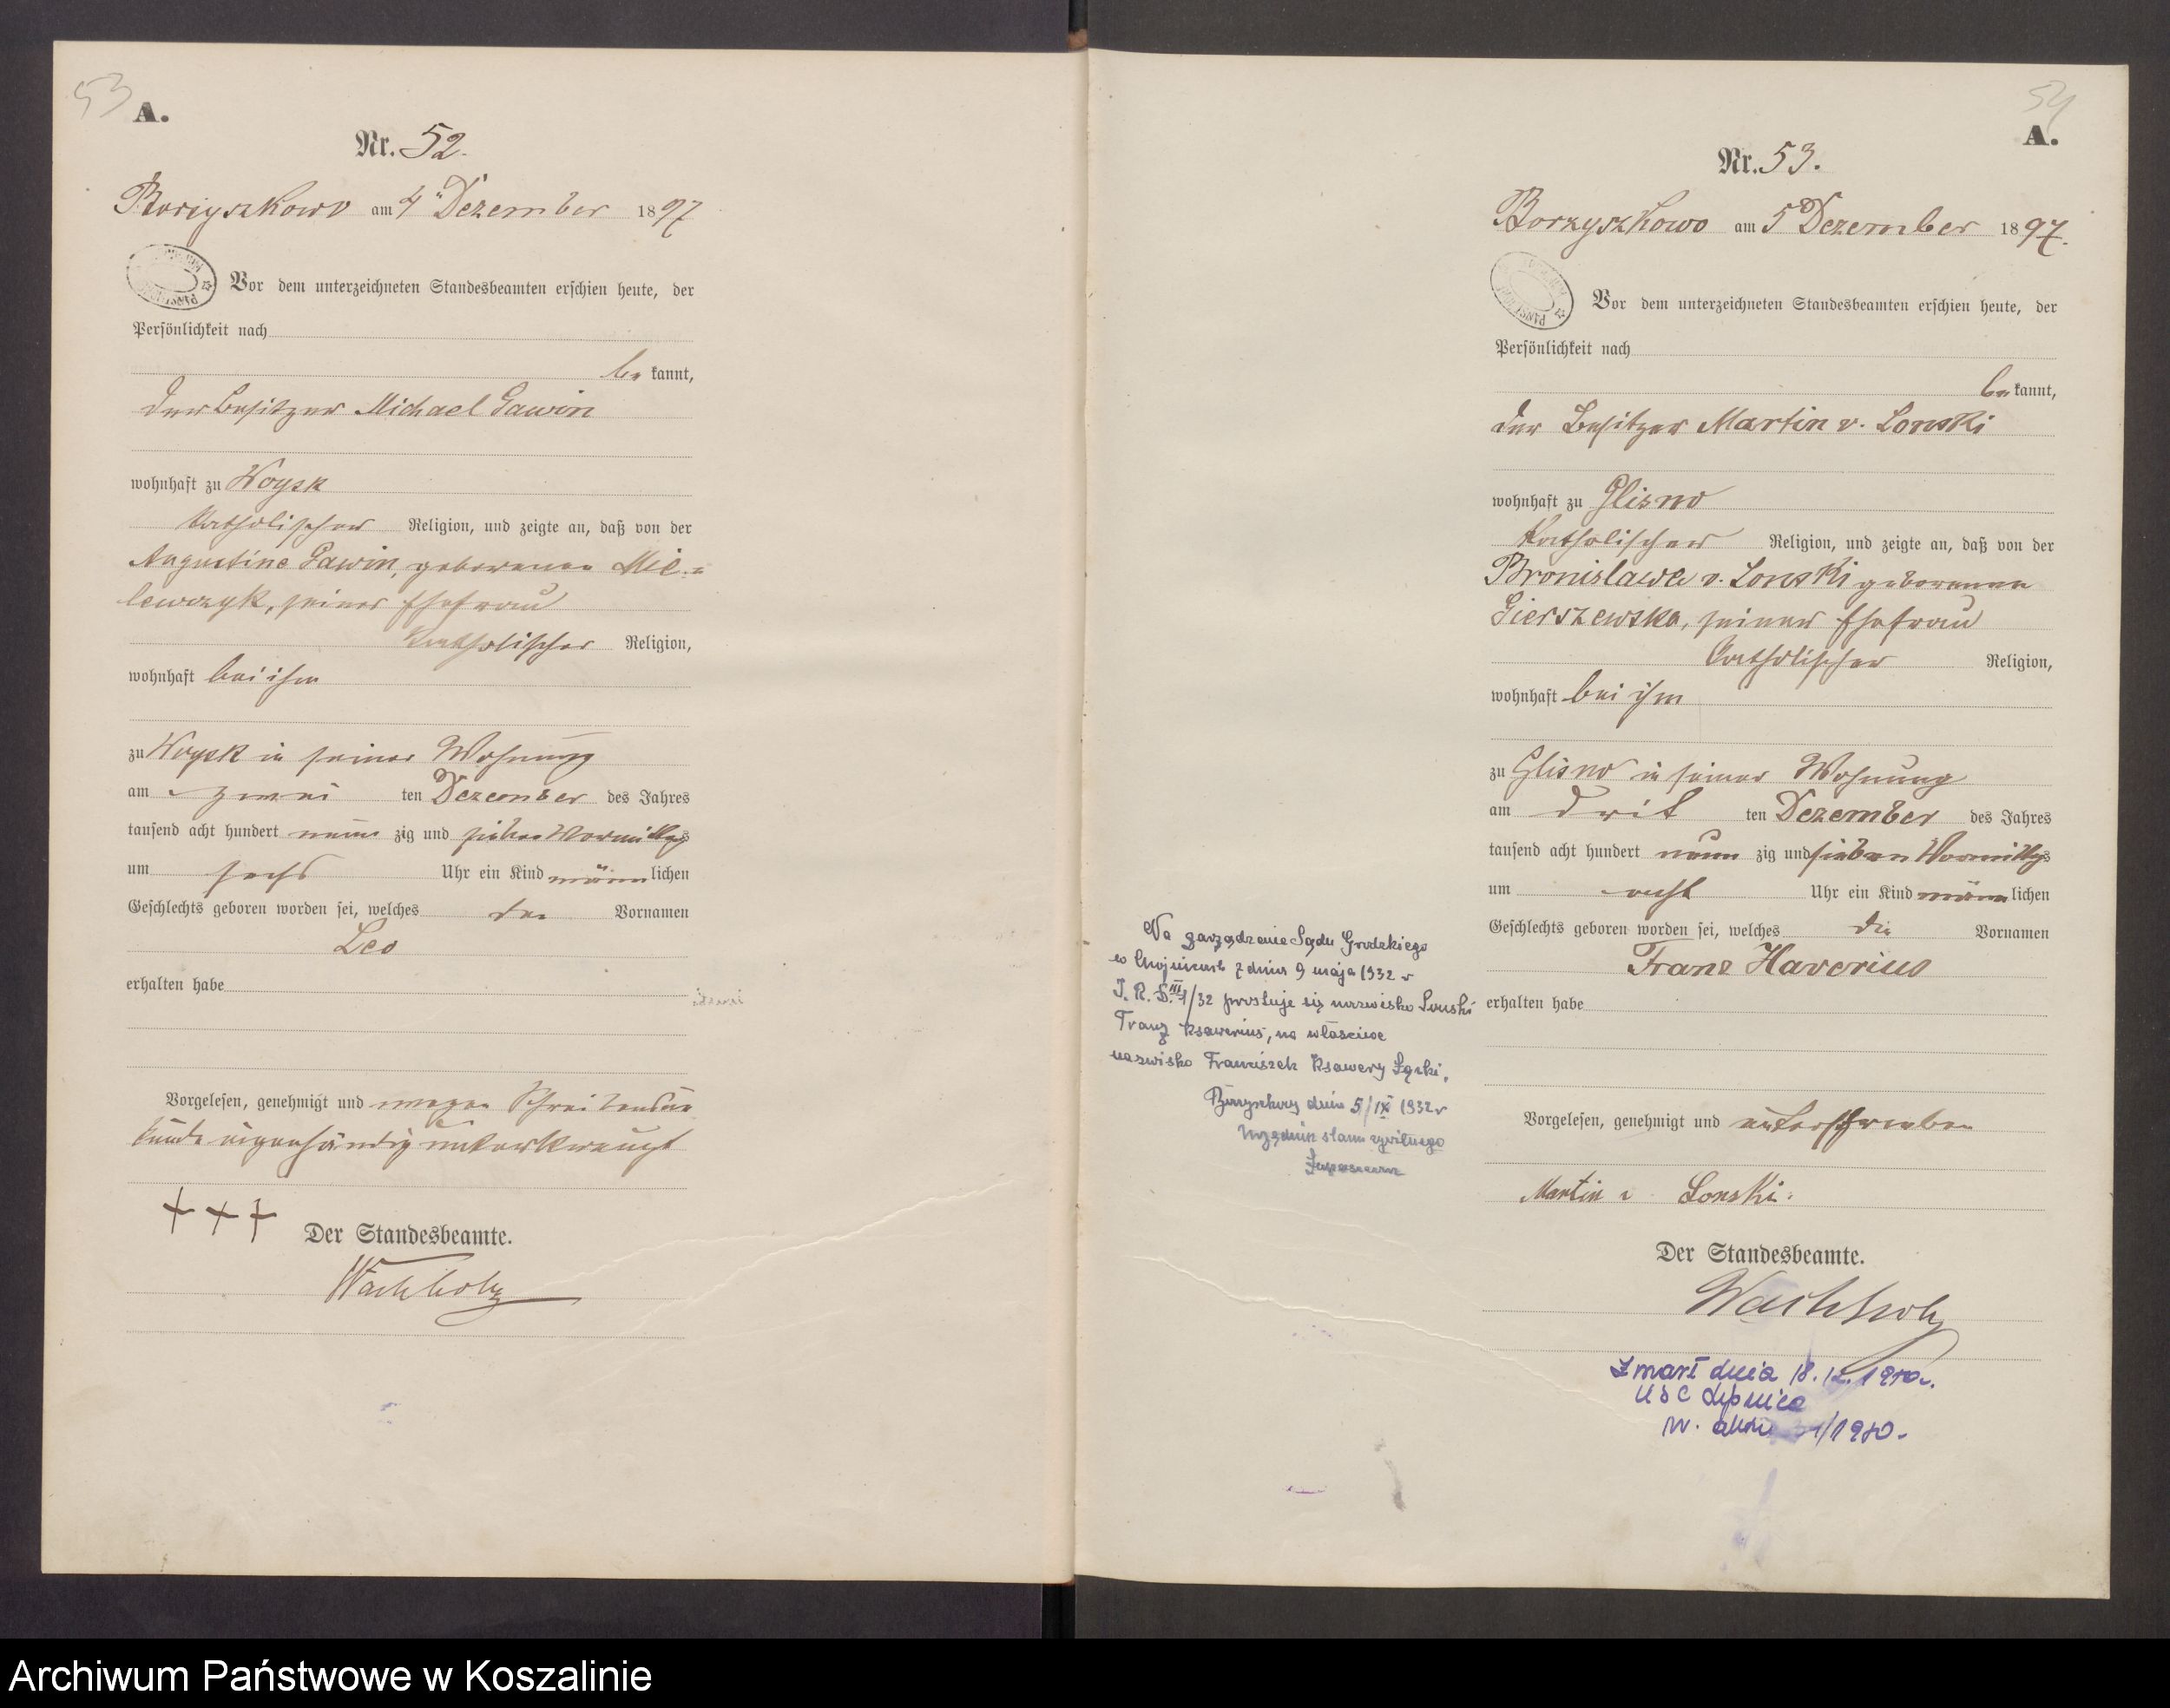 53
A.
Nr. 52.
Borzyszkowo am 4 Dezember 1897
Vor dem unterzeichneten Standesbeamten erschien heute, der
Persönlichkeit nach
be kannt,
der Besitzer Michael Gawin
wohnhaft zu Woysk
katholischer Religion, und zeigte an, daß von der
Augustine Gawin, geborenen Mie-
lewczyk, seiner Ehefrau
katholischer Religion,
wohnhaft bei ihm
zu Woysk in seiner Wohnung
am zwei ten Dezember des Jahres
tausend acht hundert neun zig und sieben Vormittags
um sechs Uhr ein Kind männ lichen
Geschlechts geboren worden sei, welches den Vornamen
Leo
erhalten habe
Vorgelesen, genehmigt und wegen Schreibensun
kunde eigenhändig unterkreuzt
+++
Der Standesbeamte.
Wachholz
54
A.
Nr. 53.
Borzyszkowo am 5 Dezember 1897.
Vor dem unterzeichneten Standesbeamten erschien heute, der
Persönlichkeit nach
be kannt,
der Besitzer Martin v. Lonski
wohnhaft zu Glisno
katholischer Religion, und zeigte an, daß von der
Bronislawa v. Lonski geborenen
Gierszewska, seiner Ehefrau
katholischer Religion,
wohnhaft bei ihm
zu Glisno in seiner Wohnung
am drit ten Dezember des Jahres
tausend acht hundert neun zig und sieben Vormittags
um acht Uhr ein Kind männ lichen
Geschlechts geboren worden sei, welches die Vornamen
Franz Xaverius
erhalten habe
Vorgelesen, genehmigt und unterschrieben
Martin v Lonski.
Der Standesbeamte.
Wachholz
Zmarł dnia 18.
USC Lipnica
nr. aktu /1980.
Na zarządzenie Sądu Grodzkiego
w Chojnicach z dnia 9 maja 1932 r
I. R. S. III 1/32 prostuje się nazwisko Lonski
Franz Ksawerius, na właściwe
nazwisko Franciszek Ksawery Łącki.
Borzyszkowy dnia 5/IX 1932 r
Urzędnik stanu cywilnego
Archiwum Państwowe w Koszalinie